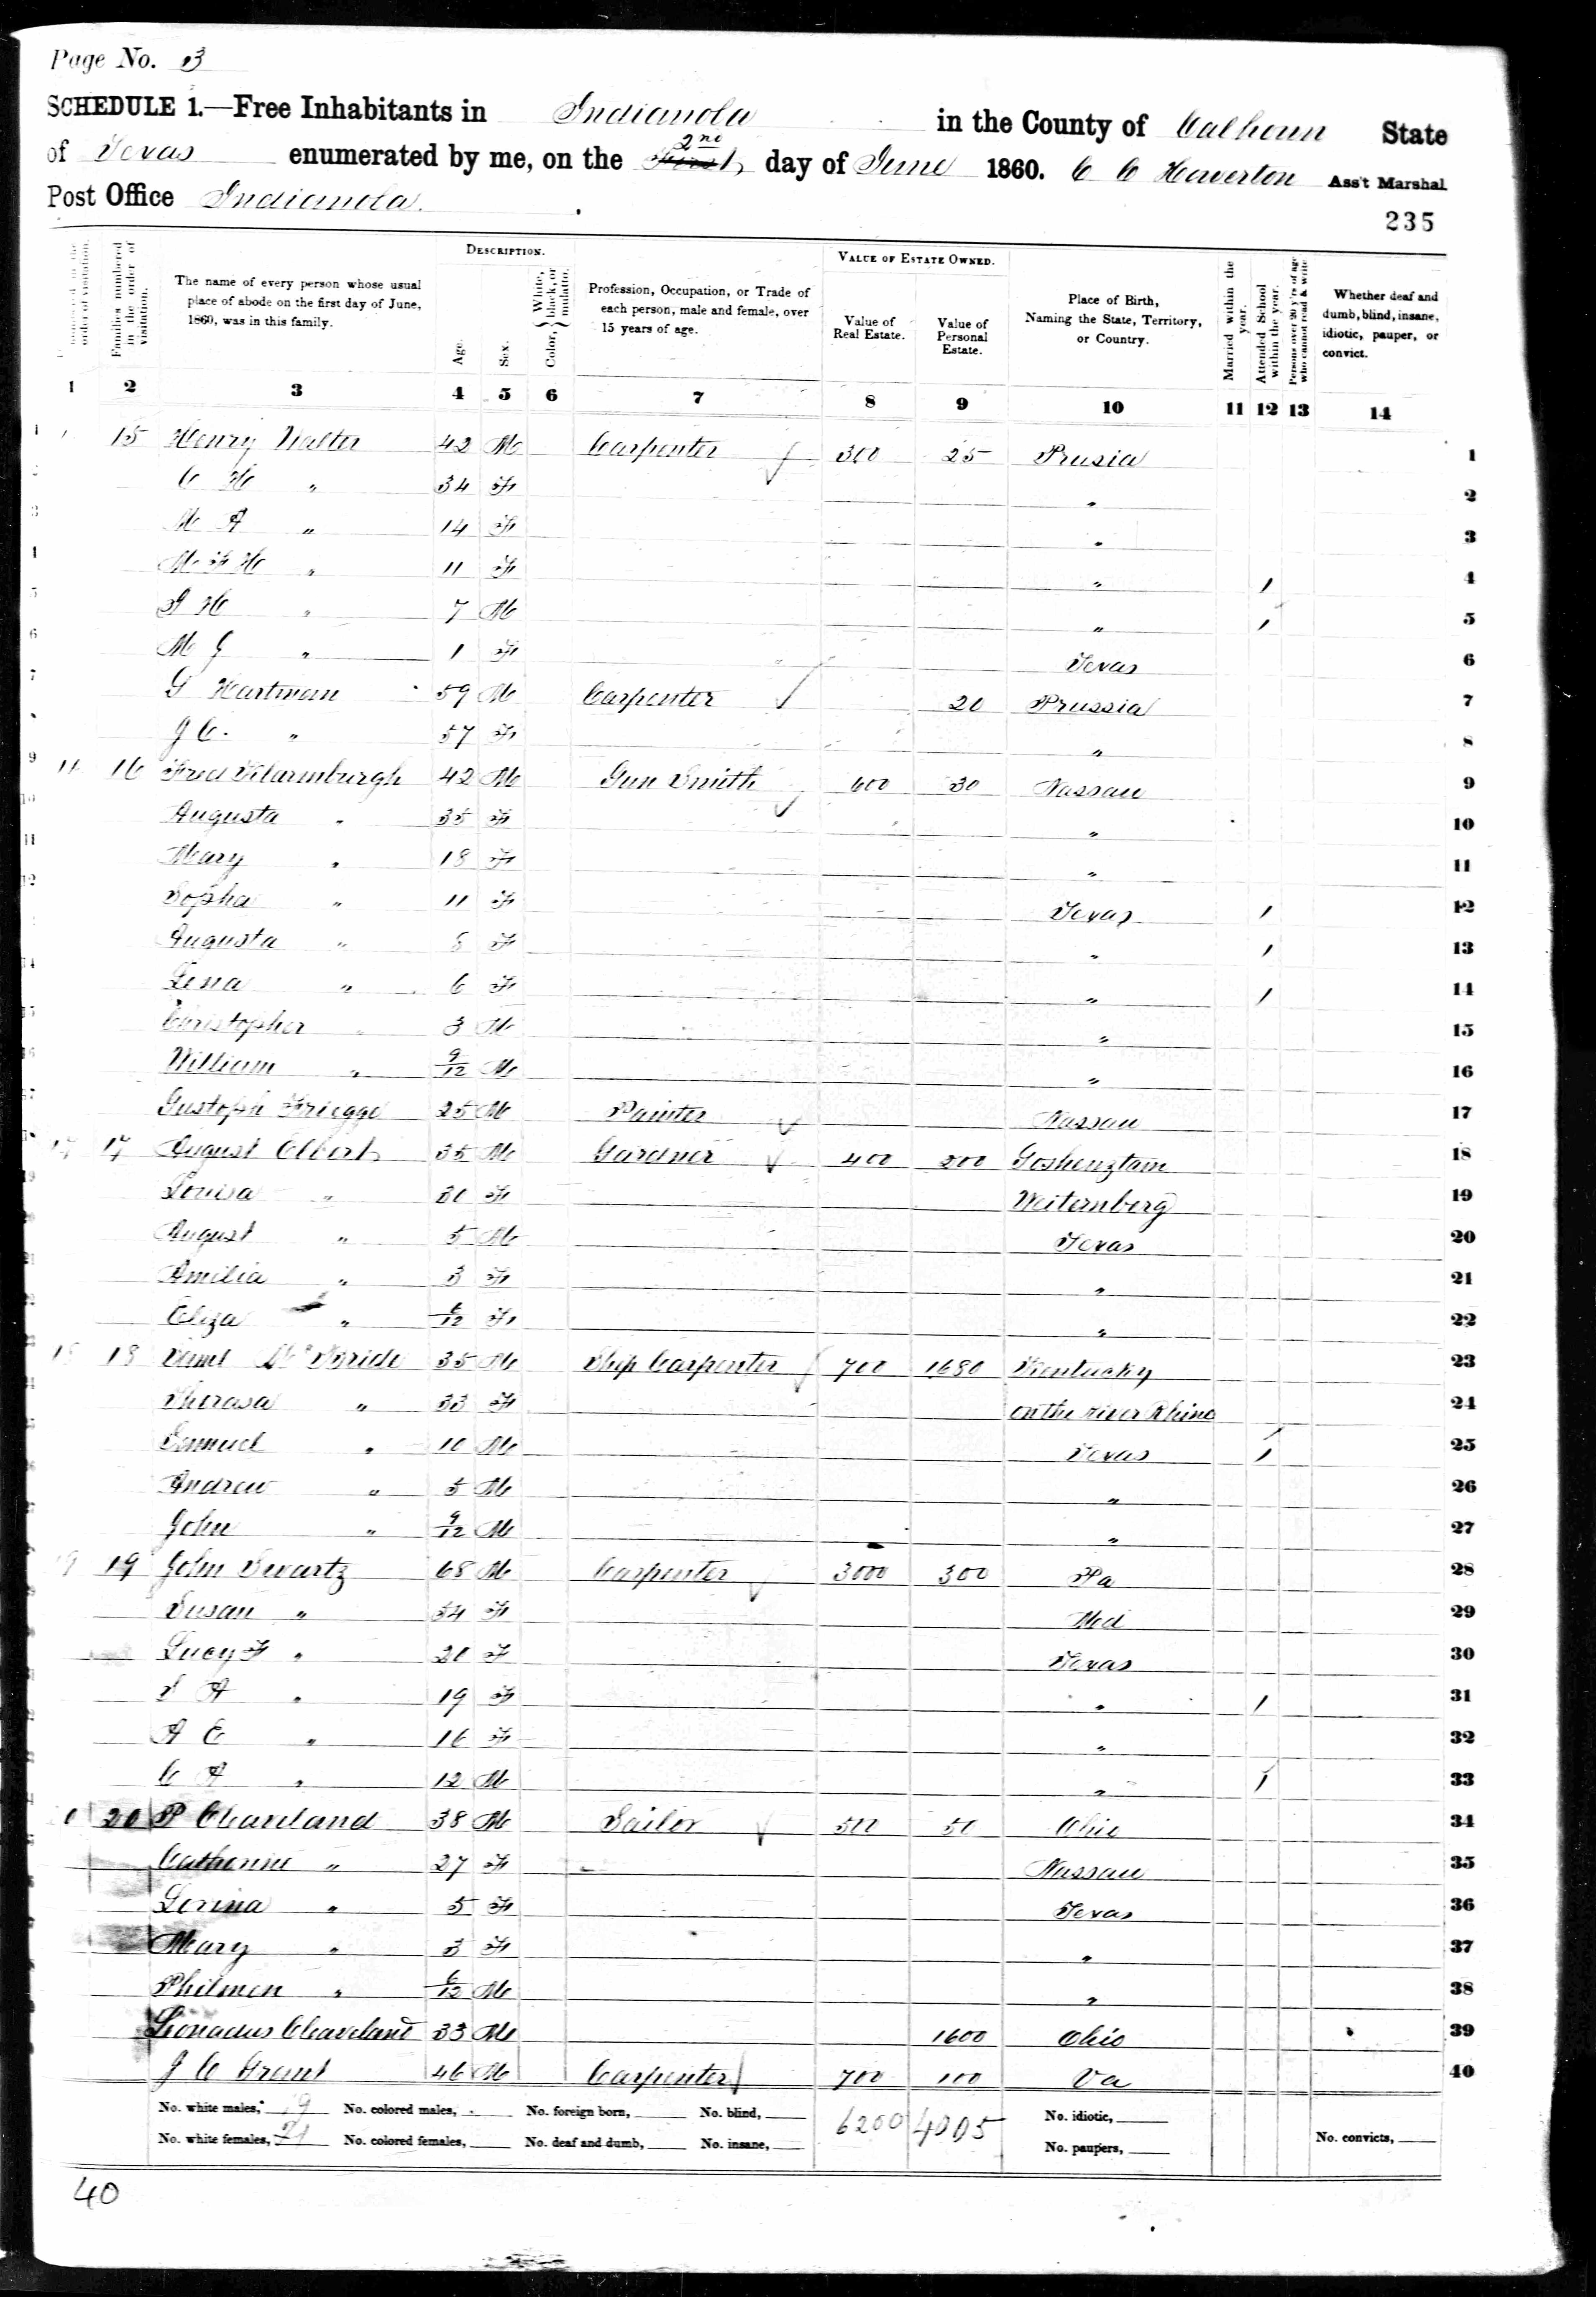 Page No. 3
SCHEDULE 1.—Free Inhabitants in Indianola in the County of Calhoun State
of Texas enumerated by me, on the 2nd day of June 1860. C C Howerton Ass't Marshal
Post Office Indianola.
235
DESCRIPTION. VALUE OF ESTATE OWNED.
Families numbered in the order of visitation.
The name of every person whose usual place of abode on the first day of June, 1860, was in this family.
Age. Sex. Color, White, black, or mulatto.
Profession, Occupation, or Trade of each person, male and female, over 15 years of age.
Value of Real Estate. Value of Personal Estate.
Place of Birth, Naming the State, Territory, or Country.
Married within the year. Attended School within the year. Persons over 20 y'rs of age who cannot read & write
Whether deaf and dumb, blind, insane, idiotic, pauper, or convict.
1 2 3 4 5 6 7 8 9 10 11 12 13 14
1 15 Henry Walter 42 M Carpenter 300 25 Prusia 1
C H " 34 F " 2
M A " 14 F " 3
M F H " 11 F " / 4
H " 7 M " / 5
M J " 1 F Texas 6
G Hartman 59 M Carpenter 20 Prussia 7
J C. " 57 F " 8
9 16 Fred 42 M Gun Smith 600 30 Nassau 9
Augusta " 35 F " 10
Mary " 18 F " 11
Sopha " 11 F Texas / 12
Augusta " 8 F " / 13
Lena " 6 F " / 14
Christopher " 3 M " 15
William " 9/12 M " 16
Gustoph 25 M Painter Nassau 17
17 17 August Elbert 35 M Gardner 400 200 18
Louisa " 30 F Weitemberg 19
August " 5 M Texas 20
Amilia " 3 F " 21
Eliza " 6/12 F " 22
18 Mc Bride 35 M Ship Carpenter 700 1680 Kentucky 23
Therasa " 33 F on the river Rhine 24
Samuel " 10 M Texas / 25
Andrew " 5 M " 26
John " 9/12 M " 27
19 19 John Swartz 68 M Carpenter 3000 300 Pa 28
Susan " 54 F Md 29
Lucy F " 20 F Texas 30
S A " 19 F " / 31
A E " 16 F " 32
C A " 12 M " / 33
20 P Cleaveland 38 M Sailor 500 50 Ohio 34
Catherine " 27 F Nassau 35
" 5 F Texas 36
Mary " 3 F " 37
Philmon " 6/12 M " 38
Leonadus Cleaveland 33 M 1600 Ohio 39
J C Grant 46 M Carpenter 700 100 Va 40
No. white males, 19 No. colored males, No. foreign born, No. blind, 6200 4005 No. idiotic,
No. white females, 21 No. colored females, No. deaf and dumb, No. insane, No. paupers, No. convicts,
40